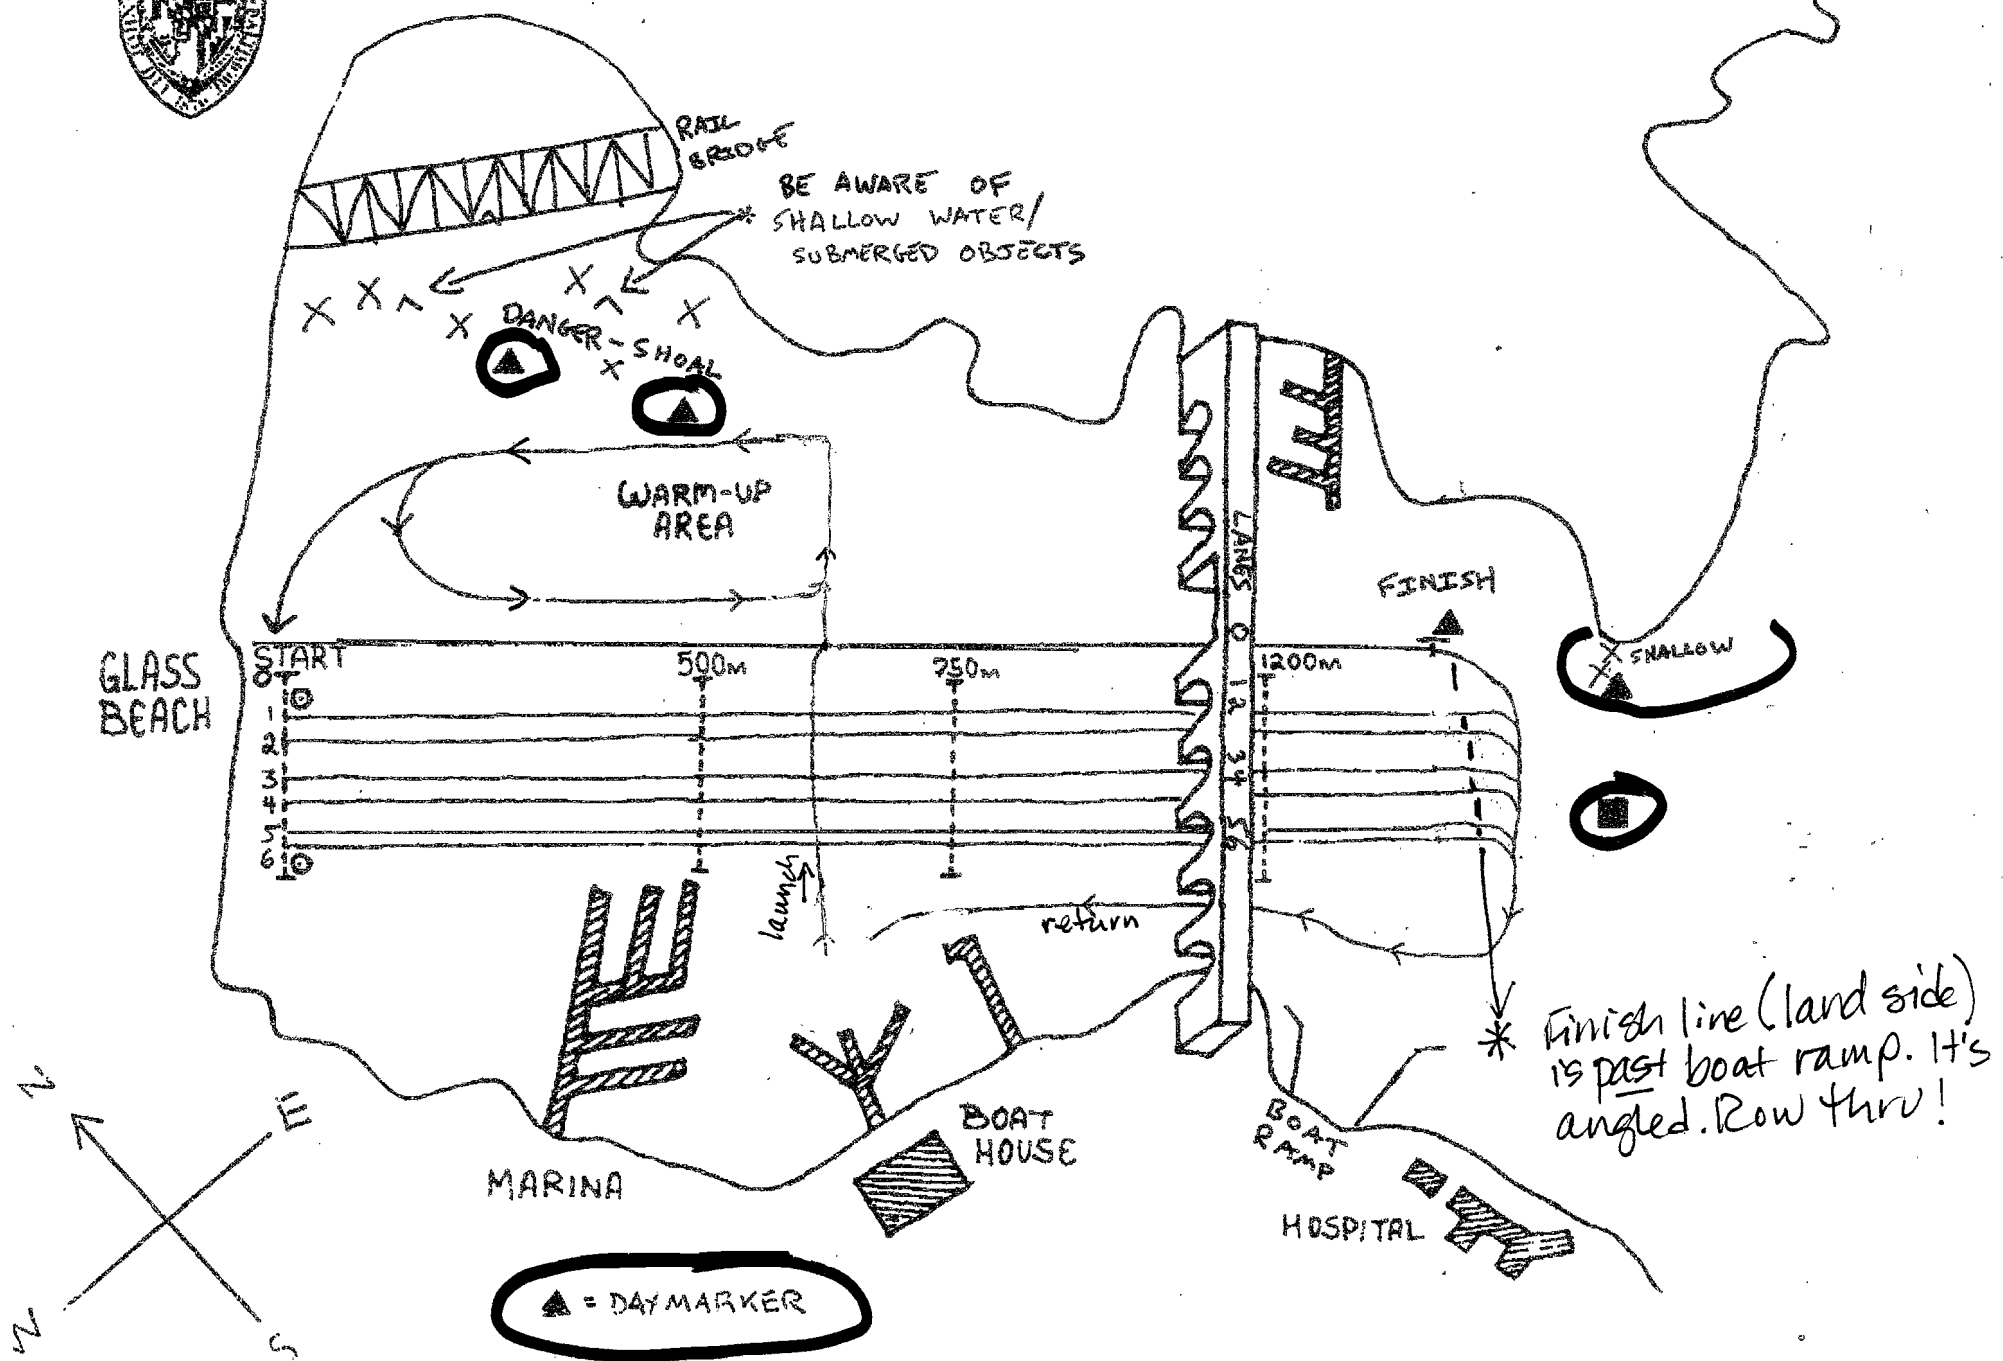 RAIL
BRIDGE
BE AWARE OF
* SHALLOW WATER/
SUBMERGED OBJECTS
DANGER-SHOAL
WARM-UP
AREA
LANES 0 1 2 3 4 5 6
FINISH
SHALLOW
GLASS
BEACH
START
500m
750m
1200m
0
1
2
3
4
5
6
launch
return
* Finish line (land side)
is past boat ramp. It's
angled. Row thru!
BOAT
HOUSE
BOAT
RAMP
MARINA
HOSPITAL
N
E
W
S
▲ = DAYMARKER